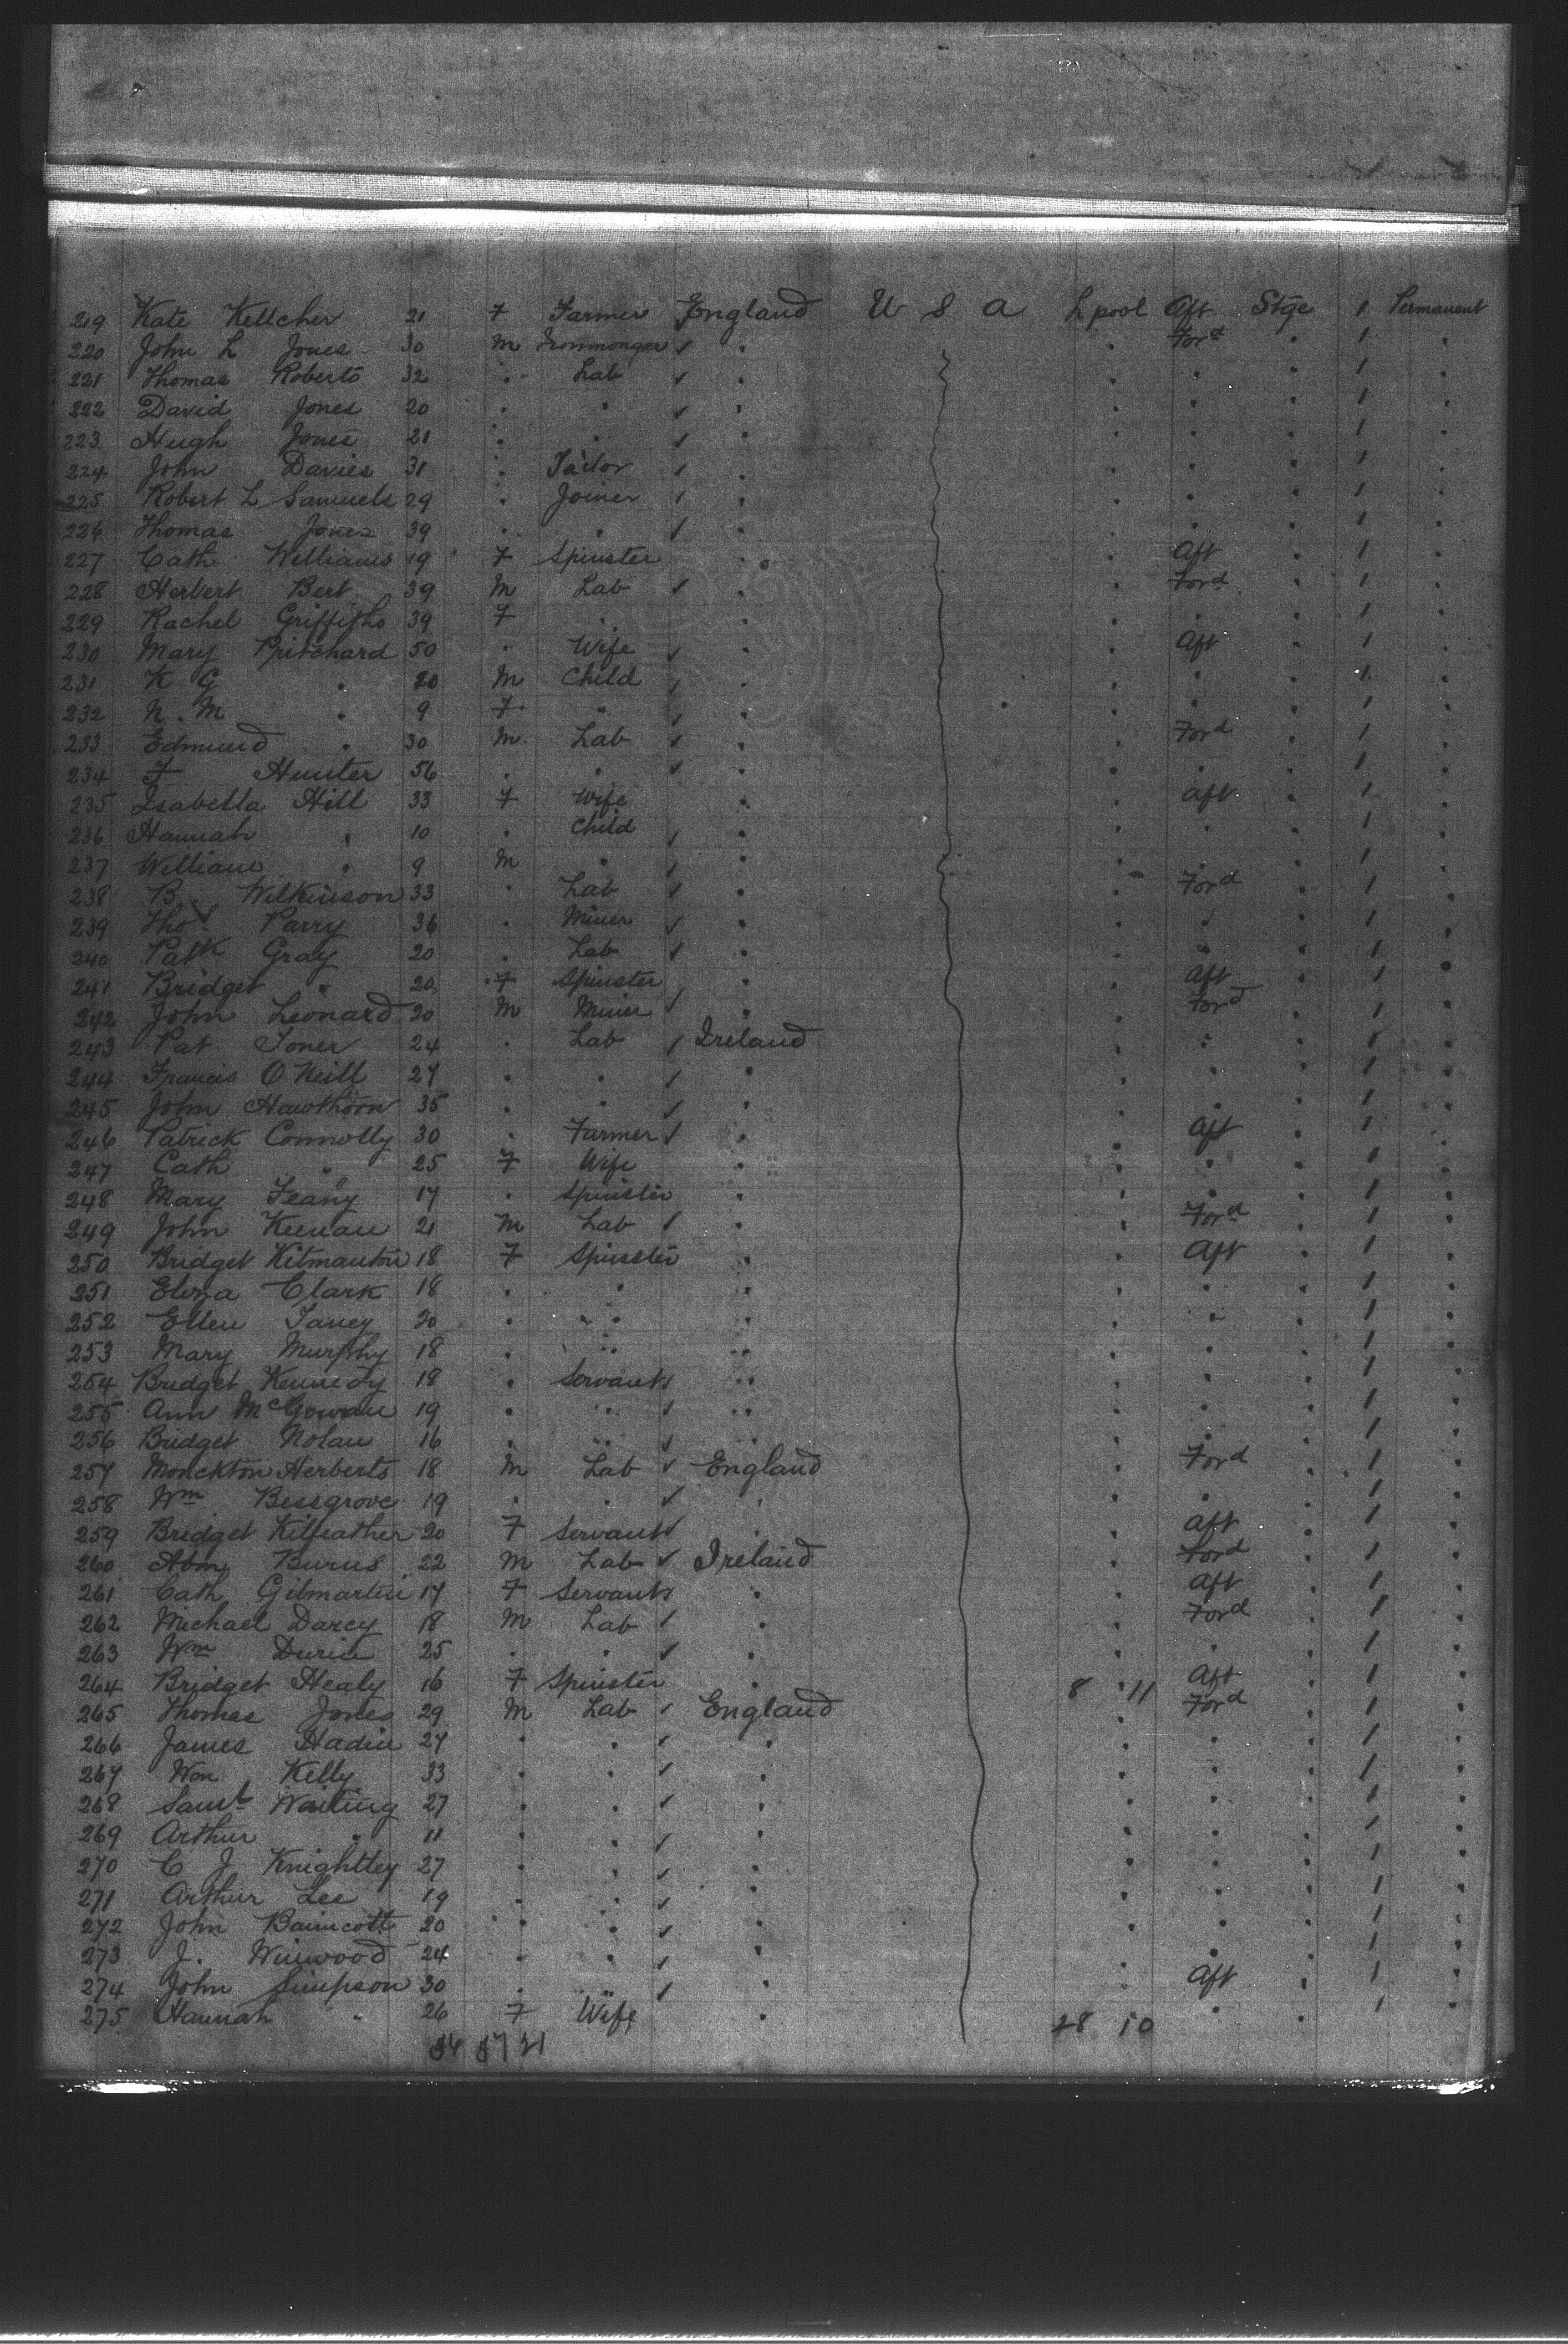 219 Kate Kellcher 21 F Farmer England U S A L pool Aft Stge 1 Permanent
220 John L Jones 30 M Ironmonger ✓ . . Ford . 1 .
221 Thomas Roberts 32 . Lab ✓ . . . . 1 .
222 David Jones 20 . . ✓ . . . . 1 .
223 Hugh Jones 21 . . ✓ . . . . 1 .
224 John Davies 31 . Tailor ✓ . . . . 1 .
225 Robert L Samuels 29 . Joiner ✓ . . . . 1 .
226 Thomas Jones 39 . . ✓ . . . . 1 .
227 Cath Williams 19 F Spinster . . Aft . 1 .
228 Herbert Bert 39 M Lab ✓ . . Ford . 1 .
229 Rachel Griffiths 39 F . . . . . 1 .
230 Mary Pritchard 50 . Wife ✓ . . Aft . 1 .
231 K G . 20 M Child ✓ . . . . 1 .
232 N. M . 9 F " ✓ . . . . 1 .
233 Edmund . 30 M Lab ✓ . . Ford . 1 .
234 F Hunter 56 . . ✓ . . . . 1 .
235 Isabella Hill 33 F Wife . . Aft . 1 .
236 Hannah . 10 . Child ✓ . . . . 1 .
237 William . 9 M . ✓ . . . . 1 .
238 B. Wilkinson 33 . Lab ✓ . . Ford . 1 .
239 Thos Parry 36 . Miner ✓ . . . . 1 .
240 Patk Gray 20 . Lab ✓ . . . . 1 .
241 Bridget " 20 F Spinster . . Aft . 1 .
242 John Leonard 20 M Miner ✓ . . Ford . 1 .
243 Pat Toner 24 . Lab ✓ Ireland . . . 1 .
244 Francis O'Neill 27 . . ✓ . . . . 1 .
245 John Hawthorn 35 . . ✓ . . . . 1 .
246 Patrick Connolly 30 . Farmer ✓ . . Aft . 1 .
247 Cath " 25 F Wife . . . . 1 .
248 Mary Feany 17 . Spinster . . . . 1 .
249 John Keenan 21 M Lab ✓ . . Ford . 1 .
250 Bridget Kitmantin 18 F Spinster . . Aft . 1 .
251 Eliza Clark 18 . . . . . . 1 .
252 Ellen Taney 20 . . . . . . 1 .
253 Mary Murphy 18 . . . . . . 1 .
254 Bridget Kennedy 18 . Servant ✓ . . . . 1 .
255 Ann McGowan 19 . . ✓ . . . . 1 .
256 Bridget Nolan 16 . . ✓ . . . . 1 .
257 Monckton Herberts 18 M Lab ✓ England . Ford . 1 .
258 Wm Bessgrove 19 . . ✓ . . . . 1 .
259 Bridget Kilfeather 20 F Servant ✓ . . Aft . 1 .
260 Abm Burns 22 M Lab ✓ Ireland . Ford . 1 .
261 Cath Gilmartin 17 F Servant ✓ . . Aft . 1 .
262 Michael Darcy 18 M Lab ✓ . . Ford . 1 .
263 Wm Durin 25 . . ✓ . . . . 1 .
264 Bridget Healy 16 F Spinster . 8 11 Aft . 1 .
265 Thomas Jones 29 M Lab ✓ England . Ford . 1 .
266 James Hadin 27 . . ✓ . . . . 1 .
267 Wm Kelly 33 . . ✓ . . . . 1 .
268 Saml Waiting 27 . . ✓ . . . . 1 .
269 Arthur " 11 . . ✓ . . . . 1 .
270 C J Knightley 27 . . ✓ . . . . 1 .
271 Arthur Lee 19 . . ✓ . . . . 1 .
272 John Bainicott 20 . . ✓ . . . . 1 .
273 J. Winwood 24 . . ✓ . . . . 1 .
274 John Simpson 30 . . ✓ . . Aft . 1 .
275 Hannah . 26 F Wife . 28 10 . . 1 .